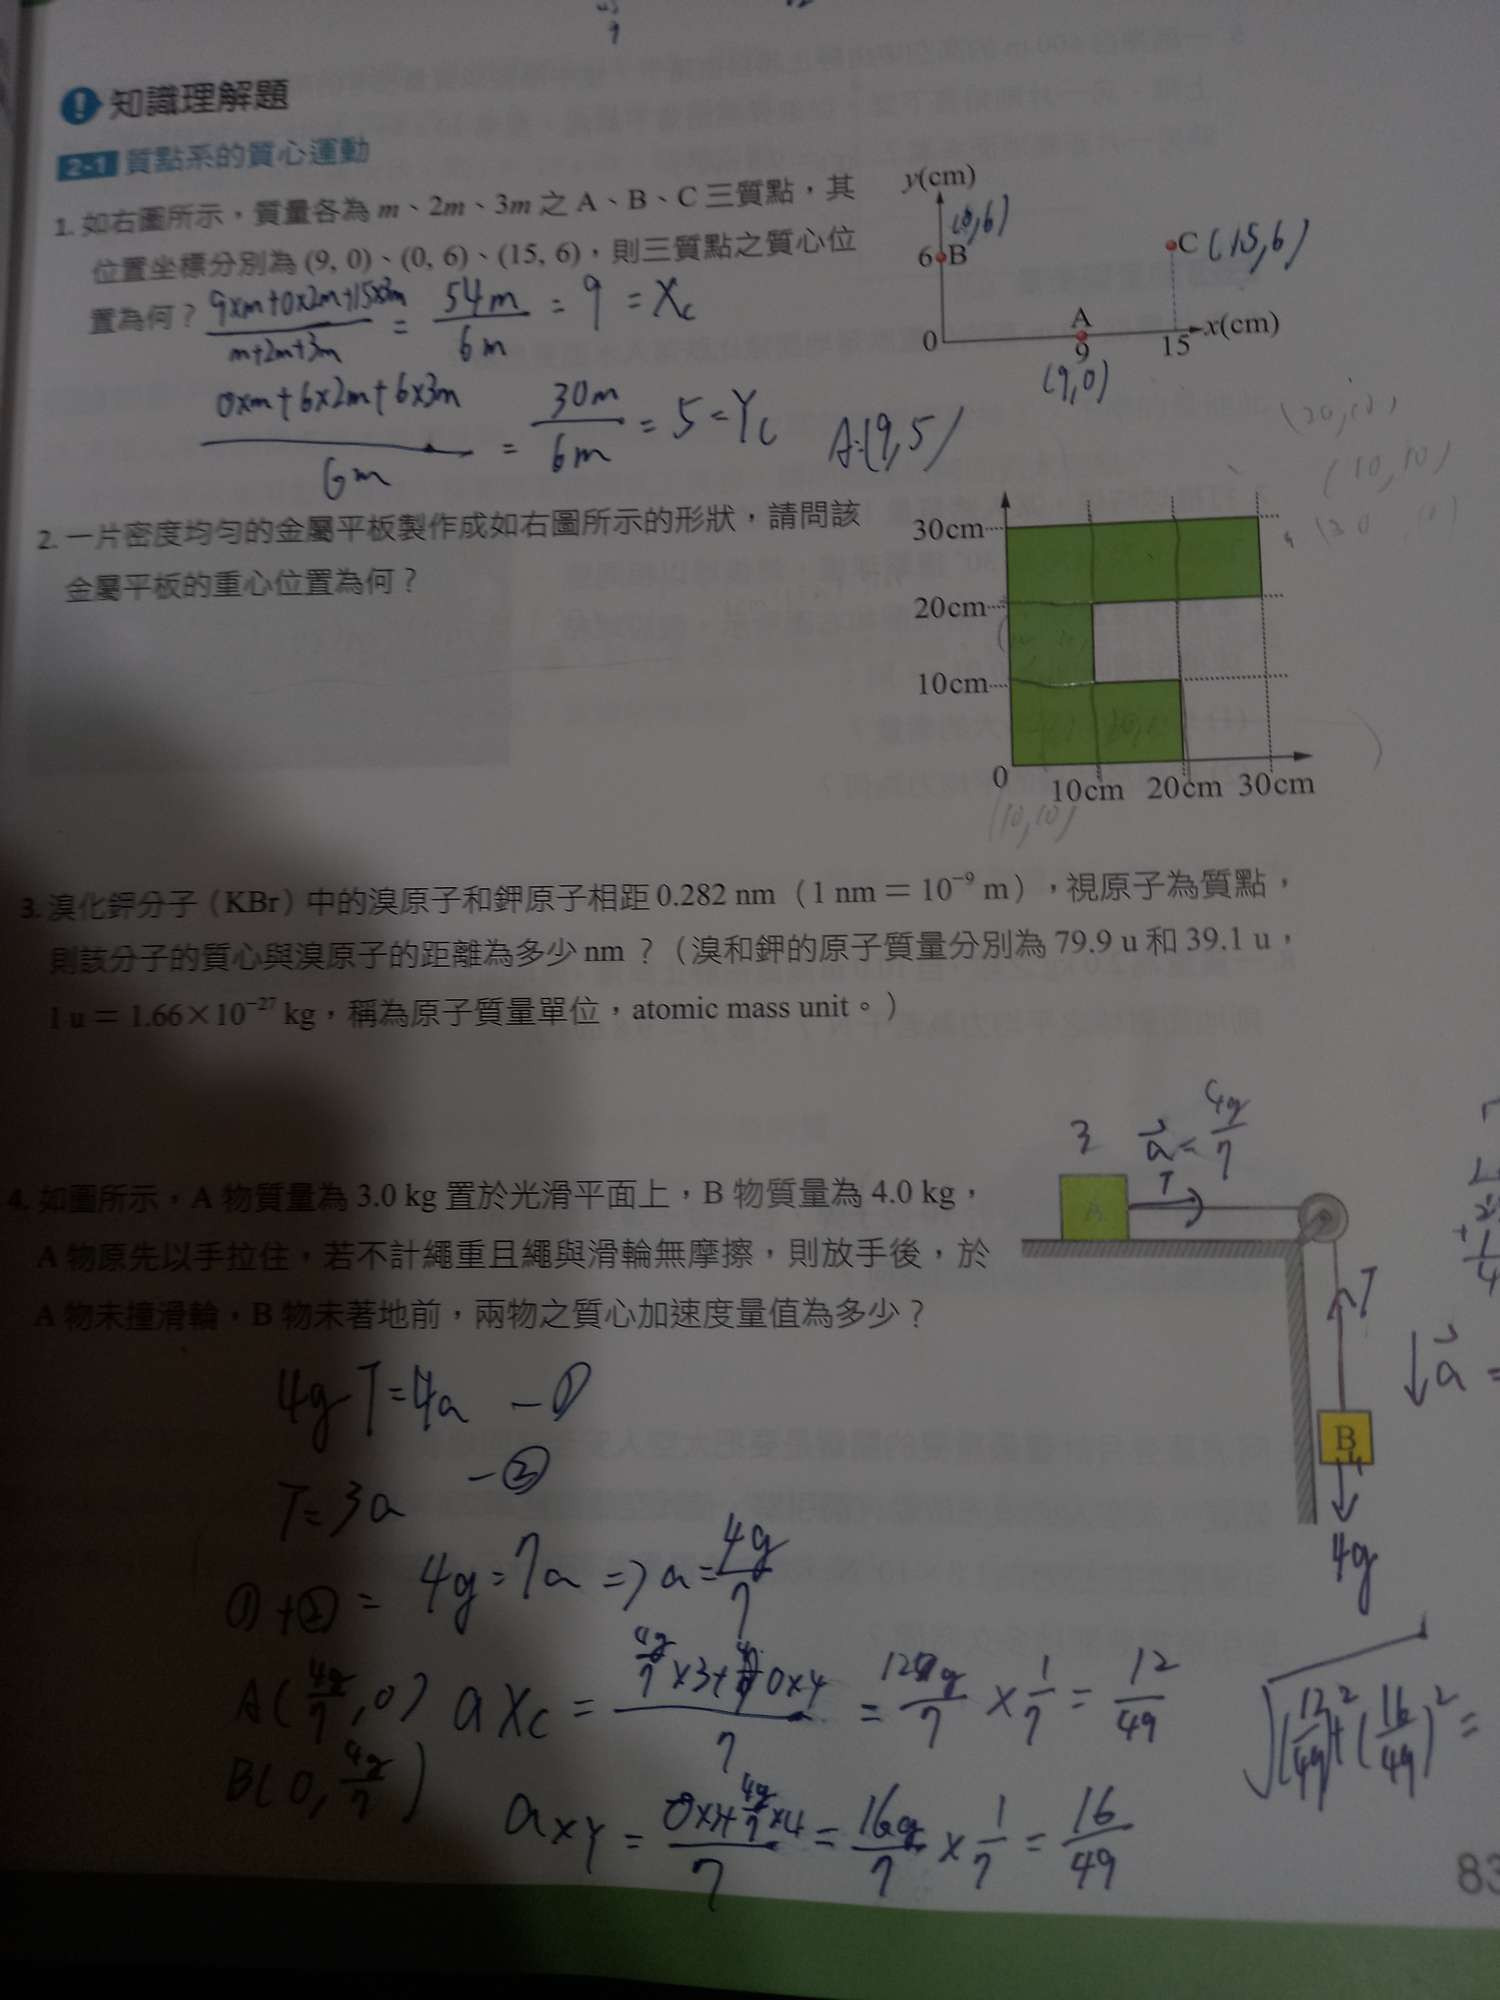 9
! 知識理解題
2-1 質點系的質心運動
1. 如右圖所示，質量各為 m、2m、3m 之 A、B、C 三質點，其
位置坐標分別為 (9, 0)、(0, 6)、(15, 6)，則三質點之質心位
置為何？
9×m+0×2m+15×3m
m+2m+3m
= 54m
6m
= 9 = Xc
0×m+6×2m+6×3m
6m
= 30m
6m
= 5 = Yc
A:(9,5)
y(cm)
(0,6)
6 B
C (15,6)
A
0 9 15 x(cm)
(9,0)
(10,10)
2. 一片密度均勻的金屬平板製作成如右圖所示的形狀，請問該
金屬平板的重心位置為何？
30cm
20cm
10cm
0 10cm 20cm 30cm
(10,10)
3. 溴化鉀分子（KBr）中的溴原子和鉀原子相距 0.282 nm（1 nm＝10⁻⁹ m），視原子為質點，
則該分子的質心與溴原子的距離為多少 nm？（溴和鉀的原子質量分別為 79.9 u 和 39.1 u，
1 u＝1.66×10⁻²⁷ kg，稱為原子質量單位，atomic mass unit。）
4. 如圖所示，A 物質量為 3.0 kg 置於光滑平面上，B 物質量為 4.0 kg，
A 物原先以手拉住，若不計繩重且繩與滑輪無摩擦，則放手後，於
A 物未撞滑輪，B 物未著地前，兩物之質心加速度量值為多少？
3 a = 4g/7
T
A
T
a =
B
4
4g
4g-T=4a －①
T=3a －②
①+② = 4g=7a => a=4g/7
A(4g/7,0) aXc = 4g/7×3+0×4
7
= 12g/7 × 1/7 = 12/49
B(0,4g/7)
axy = 4g/7×4
7
= 16g/7 × 1/7 = 16/49
√(12/49)²+(16/49)² =
83